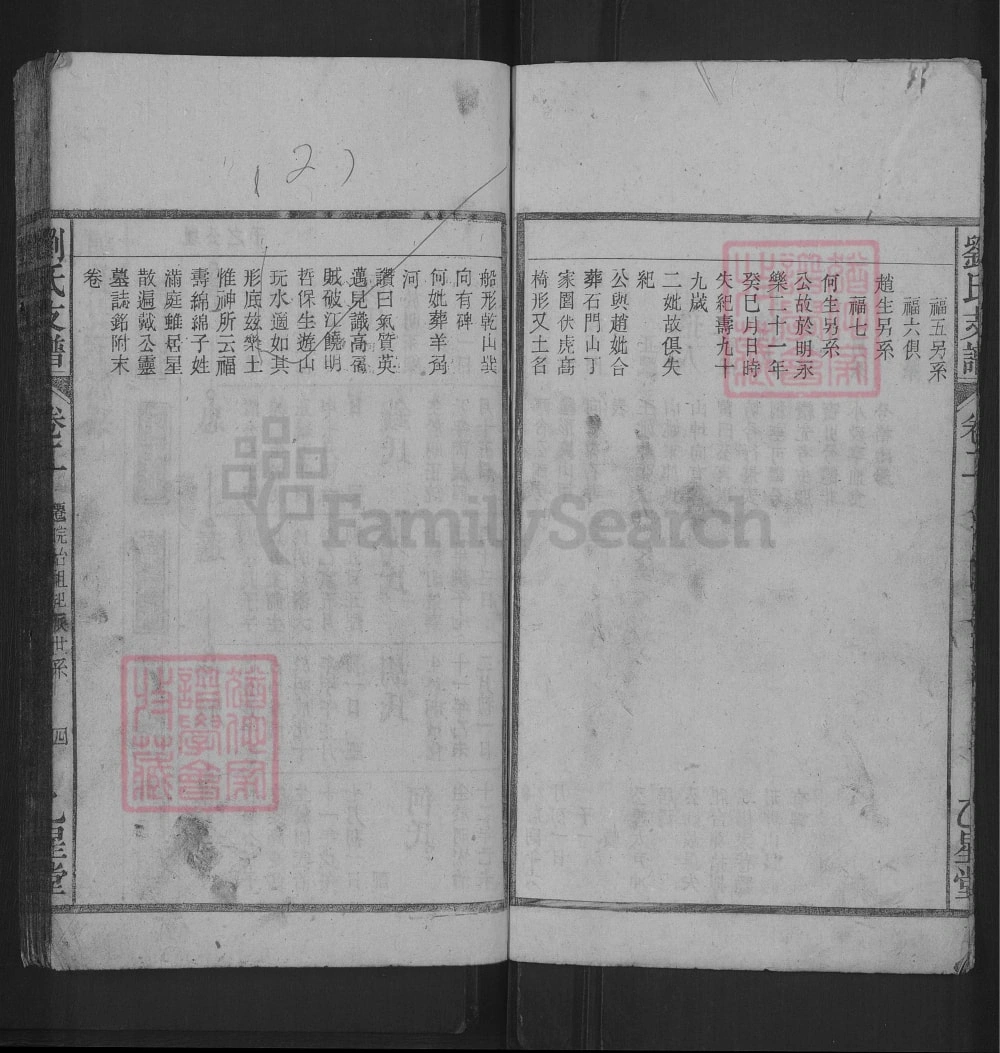 (2)
劉氏支譜
卷二
乙星堂
福五另系
福六俱
福七
趙生另系
何生另系
公故於明永
樂二十一年
癸巳月日時
失紀壽九十
九歲
二妣故俱失
紀
公與趙妣合
葬石門山丁
家園伏虎高
椅形又土名
船形乾山
向有碑
何妣葬羊角
河
讚曰氣質英
邁見識高
賊破江饒明
哲保生遊山
玩水適如其
形底茲樂土
惟神所云福
壽綿綿子姓
滿庭雖居星
散遍戴公靈
墓誌銘附末
卷
劉氏支譜
卷二
遷院始祖妃娛世系
四
乙星堂
FamilySearch